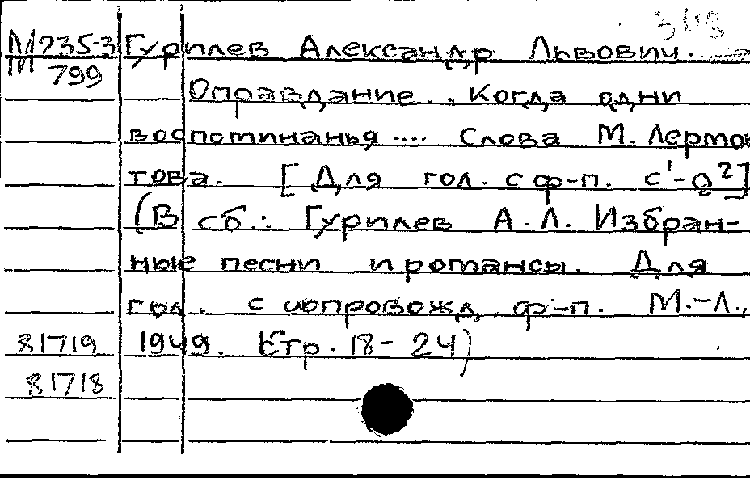 М 235-3 Гурилев Александр Львович.
М 799
Оправдание. . Когда одни
воспоминанья .... Слова М. Лермон
това. [Для гол. с ф-п. с¹-а²]
(В сб.: Гурилев А.Л. Избран-
ные песни и романсы. Для
гол. с сопровожд. ф-п. М.-Л.,
81719 1949. Стр. 18-24)
81718